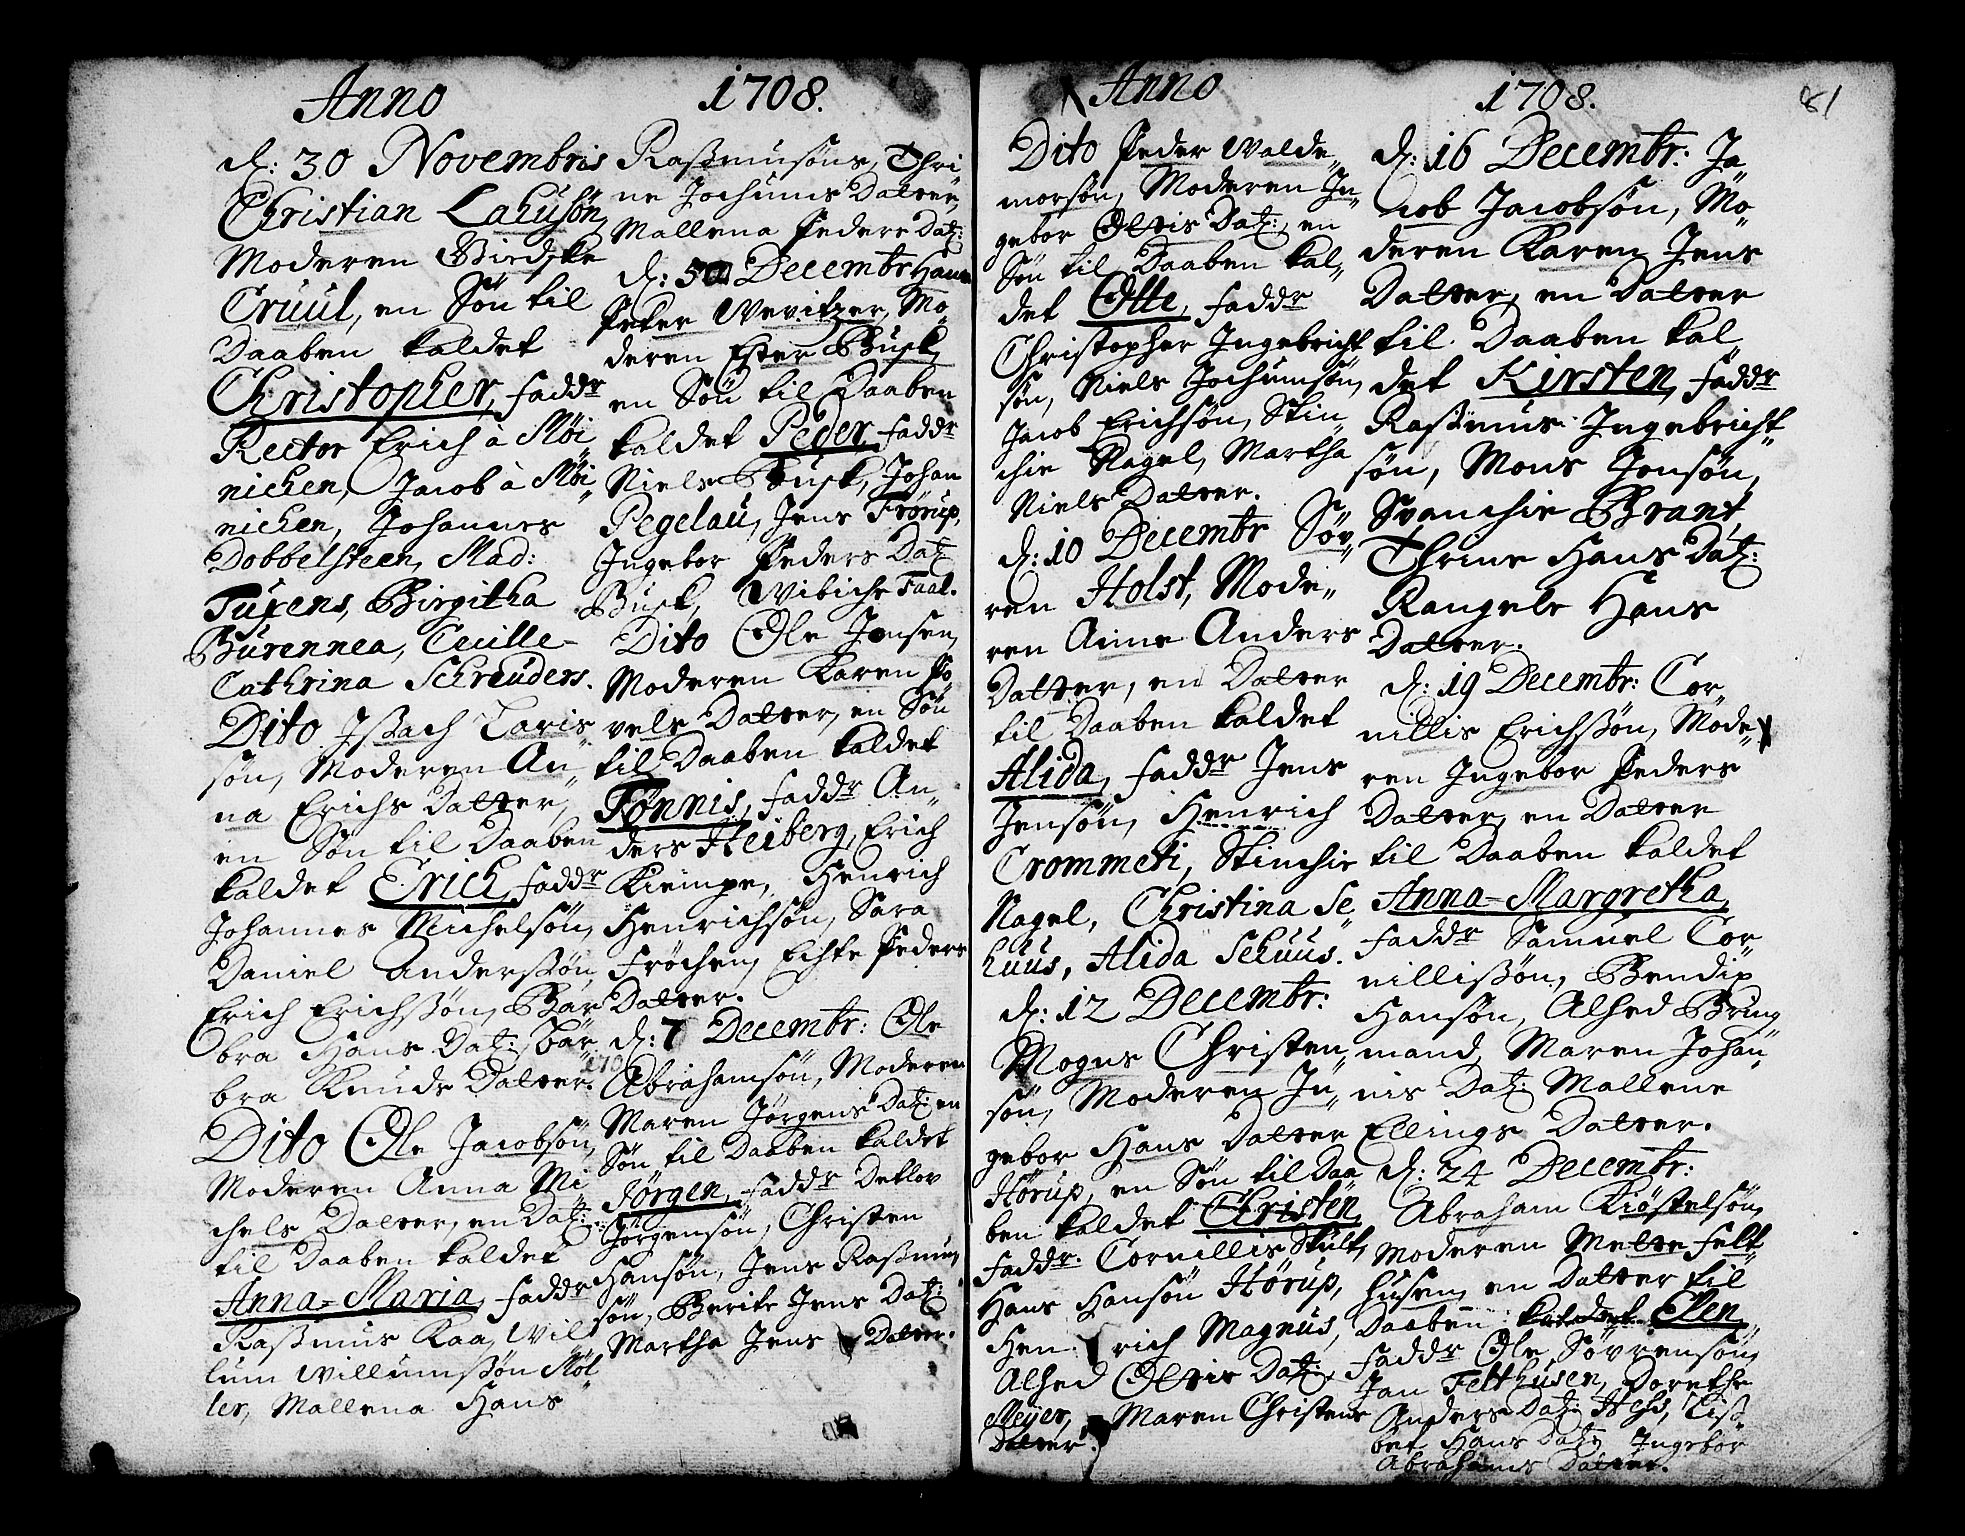 Anno 1708.
d: 30 Novembris
Christian Lahusøn,
Moderen Birdske
Cruul, en Søn til
Daaben kaldet
Christopher, faddr
Rector Erich à Møi
nichen, Jacob à Møi
nichen, Johannes
Dobbelsteen, Mad:
Tuxens, Birgitha
Burennea, Cecille
Cathrina Schreuders.
Dito Issach Laris
søn, Moderen An
na Erichs Datter,
en Søn til Daaben
kaldet Erich, faddr
Johannes Michelsøn,
Daniel Anderssøn,
Erich Erichssøn, Bar
bra Hans Dat: Bar
bra Knuds Datter.
Dito Ole Jacobsøn,
Moderen Anna Mi
chels Datter, en Dat:
til Daaben kaldet
Anna-Maria, faddr
Rasmus Kaa, Wil
lum Willumssøn Møl
ler, Mallena Hans
Rasmusøns, Thri
ne Jochums Datter,
Mallena Peders Dat:
d: 5 Decembr Hans
Peter Weritzer, Mo
deren Ester Busk,
en Søn til Daaben
kaldet Peder, faddr
Niels Busk, Johan
Pegelau, Jens Frørup,
Ingebor Peders Dat:
Busk, Wibiche Faat.
Dito Ole Jensen,
Moderen Karen Po
vels Datter, en Søn
til Daaben kaldet
Tønnis, faddr An
ders Heiberg, Erich
Kiempe, Henrich
Henrichsøn, Sara
Frøchen, Echte Peders
Datter.
d: 7 Decembr: Ole
Abrahamsøn, Moderen
Maren Jørgens Dat: en
Søn til Daaben kaldet
Jørgen, faddr Detlov
Jørgensøn, Christen
Hansøn, Jens Rasmus
søn, Berite Jens Dat:
Martha Jens Datter.
Anno 1708. 81
Dito Peder Walde
morsøn, Moderen In
gebor Olvis Dat: en
Søn til Daaben kal
det Otte, faddr
Christopher Ingebricht
søn, Niels Jochumsøn,
Jacob Erichsøn, Stin
chie Nagel, Martha
Niels Datter.
d: 10 Decembr Søv
ren Holst, Mode
ren Anne Anders
Datter, en Datter
til Daaben kaldet
Alida, faddr Jens
Jensøn, Henrich
Crommeti, Stinchie
Nagel, Christina Se
huus, Alida Sehuus.
d: 12 Decembr:
Mogns Christen
søn, Moderen In
gebor Hans Datter
Hørup, en Søn til Daa
ben kaldet Christen,
faddr. Cornillis Skult,
Hans Hansøn Hørup,
Hen rich Magnus,
Alhed Olvis Dat:
Meyer, Maren Christens
Datter.
d: 16 Decembr: Ja
cob Jacobsøn, Mo
deren Karen Jens
Datter, en Datter
til Daaben kal
det Kirsten, faddr
Rasmus Ingebricht
søn, Mons Jonsøn,
Svanchie Brant,
Thrine Hans Dat:
Rangele Hans
Datter.
d: 19 Decembr: Cor
nillis Erichssøn, Mode
ren Ingebor Peders
Datter, en Datter
til Daaben kaldet
Anna-Margretha,
faddr Samuel Cor
nillissøn, Bendix
Hansøn, Alhed Bring
mand, Maren Johan
nis Dat: Mallene
Ellings Datter.
d: 24 Decembr:
Abraham Kiøstelsøn,
Moderen Mette Felt
husen, en Datter til
Daaben kaldet Elen,
faddr Ole Sövrensøn,
Jan Felthusen, Dorethe
Anders Dat: Hess, Liss
bet Hans Dat: Ingebor
Abrahams Datter.